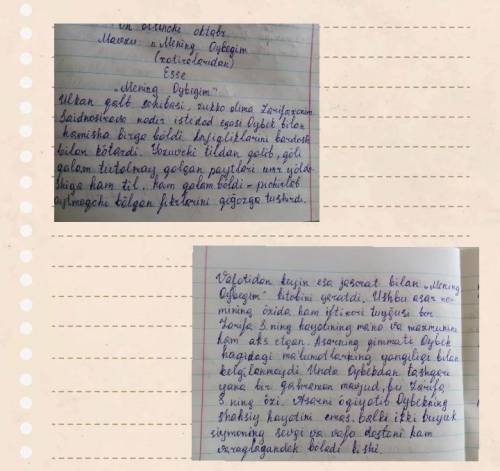 On oltinchi oktabr
Mavzu: "Mening Oybegim"
(xotiralaridan)
Esse
"Mening Oybegim"
Ulkan qalb sohibasi, zukko olima Zarifaxonim
Saidnosirova nodir istedod egasi Oybek bilan
hamisha birga bòldi.
bilan kòtardi. Yozuvchi tildan qolib, qòli
qalam tutolmay qolgan paytlari umr yòlda-
shiga ham til, ham qalam bòldi - pichirlab
aytmoqchi bòlgan fikrlarini qog'ozga tushirdi.
Vafotidan keyin esa jasorat bilan "Mening
Oybegim" kitobini yaratdi. Ushbu asar no-
mining òzida ham iftixori tuyg'usi bor
Zarifa S.ning hayotining mano va mazmunini
ham aks etgan. Asarning qimmati Oybek
haqidagi malumotlarning yangiligi bilan
belgilanmaydi. Unda Oybekdan tashqari
yana bir qahramon mavjud, bu Zarifa
S.ning òzi. Asarni òqiyotib Oybekning
shaxsiy hayotini emas, balki ikki buyuk
siymoning sevgi va vafo dostoni ham
varaqlagandek bòladi kishi.